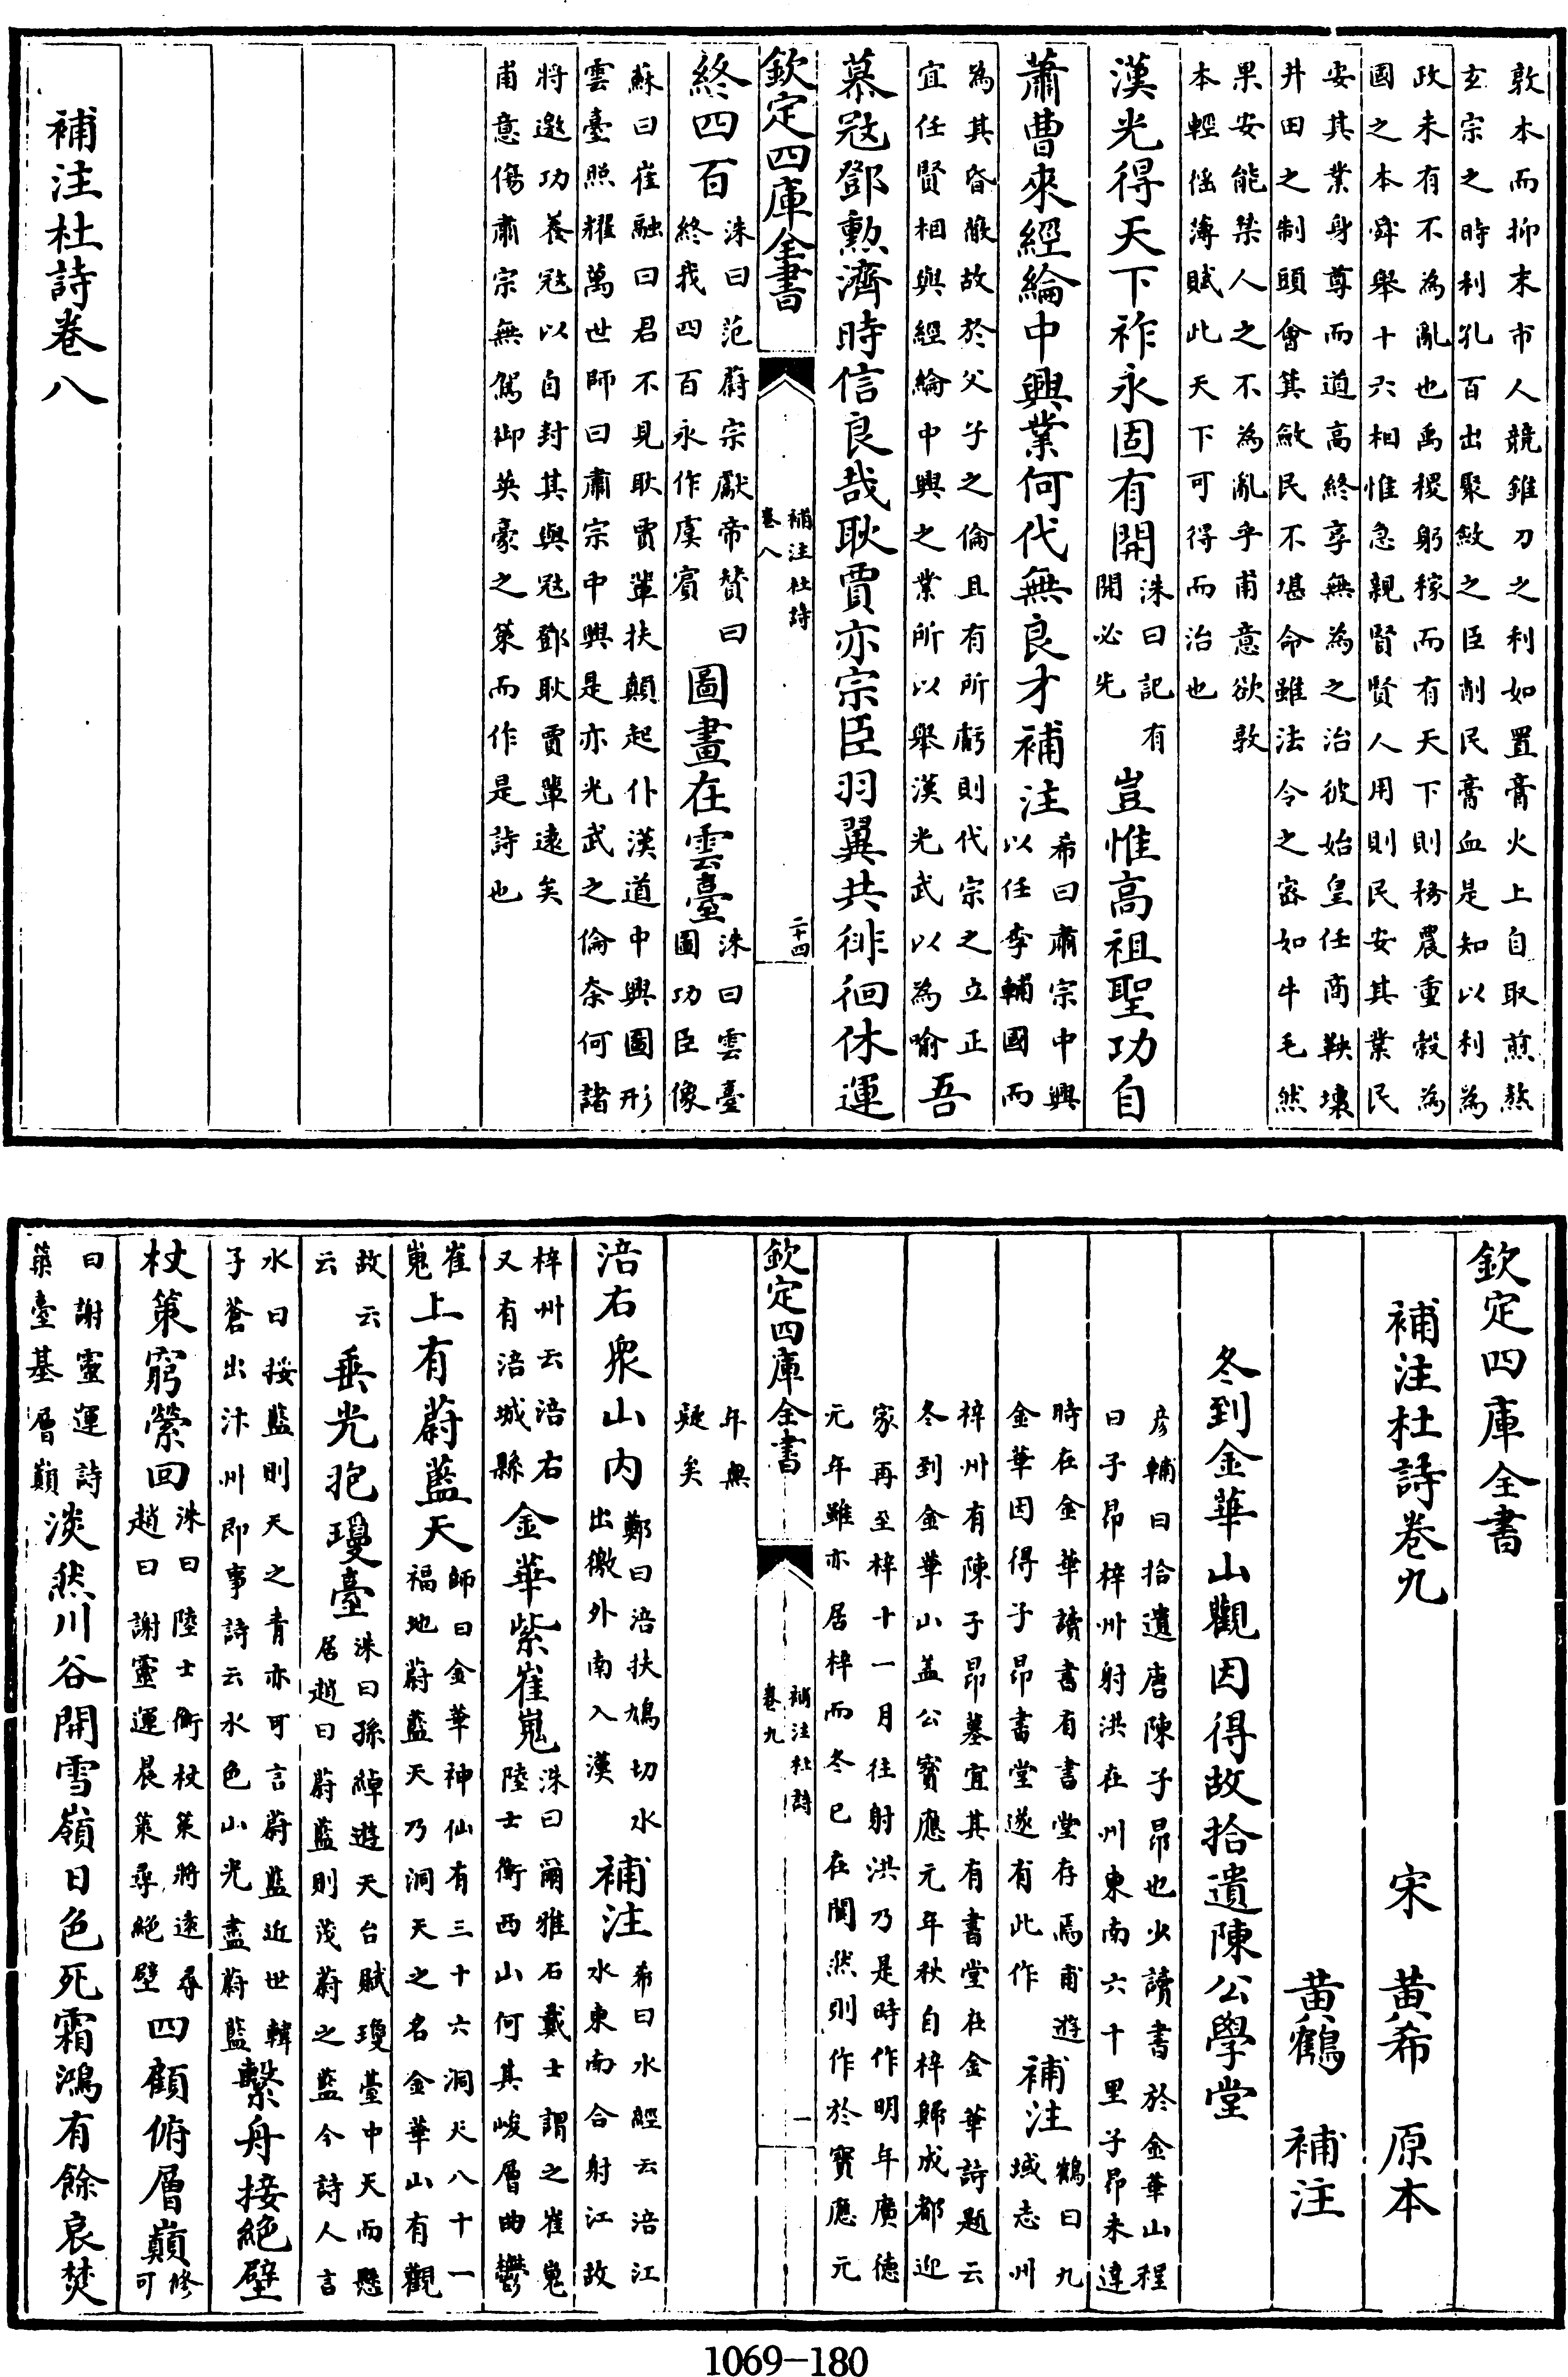 敦本而抑末市人競錐刀之利如置膏火上自取煎熬
玄宗之時利孔百出聚斂之臣削民膏血是知以利為
政未有不為亂也禹稷躬稼而有天下則務農重穀為
國之本舜舉十六相惟急親賢賢人用則民安其業民
安其業身尊而道高終享無為之治彼始皇任商鞅壞
井田之制頭會箕斂民不堪命雖法令之密如牛毛然
果安能禁人之不為亂乎甫意欲敦
本輕徭薄賦此天下可得而治也
漢光得天下祚永固有開
洙曰記有
開必先
豈惟高祖聖功自
蕭曹來經綸中興業何代無良才補注
希曰肅宗中興
以任李輔國而
為其昏蔽故於父子之倫且有所虧則代宗之立正
宜任賢相與經綸中興之業所以舉漢光武以為喻
吾
慕寇鄧勲濟時信良哉耿賈亦宗臣羽翼共徘徊休運
欽定四庫全書
補注杜詩
卷八
二十四
終四百
洙曰范蔚宗獻帝贊曰
終我四百永作虞賓
圖畫在雲臺
洙曰雲臺
圖功臣像
蘇曰崔融曰君不見耿賈輩扶顛起仆漢道中興圖形
雲臺照耀萬世師曰肅宗中興是亦光武之倫奈何諸
將邀功養寇以自封其與寇鄧耿賈輩遠矣
甫意傷肅宗無駕御英豪之策而作是詩也
補注杜詩卷八
欽定四庫全書
補注杜詩卷九
宋 黃希 原本
黃鶴 補注
冬到金華山觀因得故拾遺陳公學堂
彦輔曰拾遺唐陳子昂也少讀書於金華山程
曰子昂梓州射洪在州東南六十里子昂未達
時在金華讀書有書堂存焉甫遊
金華因得子昂書堂遂有此作
補注
鶴曰九
域志州
梓州有陳子昂墓宜其有書堂在金華詩題云
冬到金華山蓋公寳應元年秋自梓歸成都迎
家再至梓十一月往射洪乃是時作明年廣德
元年雖亦居梓而冬已在閬然則作於寳應元
欽定四庫全書
補注杜詩
卷九
一
年無
疑矣
涪右衆山内
鄭曰涪扶鳩切水
出徼外南入漢
補注
希曰水經云涪江
水東南合射江故
梓州云涪右
又有涪城縣
金華紫崔嵬
洙曰爾雅石戴土謂之崔嵬
陸士衡西山何其峻層曲鬱
崔
嵬
上有蔚藍天
師曰金華神仙有三十六洞天八十一
福地蔚藍天乃洞天之名金華山有觀
故云
云
垂光抱瓊臺
洙曰孫綽遊天台賦瓊臺中天而懸
居趙曰蔚藍則茂蔚之藍今詩人言
水曰挼藍則天之青亦可言蔚藍近世韓
子蒼出汴州即事詩云水色山光盡蔚藍
繫舟接絶壁
杖策窮縈回
洙曰陸士衡杖策將遠尋
趙曰謝靈運晨策尋絶壁
四顧俯層巔
修
可
曰謝靈運詩
築臺基層巔
淡然川谷開雪嶺日色死霜鴻有餘哀焚
1069-180